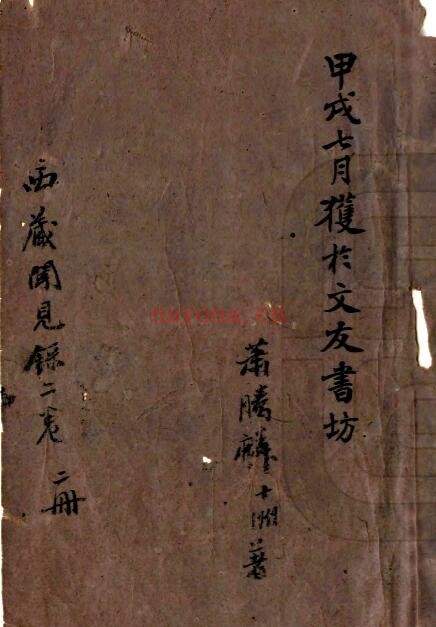 甲戌七月獲於文友書坊
蕭騰麟十洲著
西藏聞見錄二卷 二冊
nayona.cn